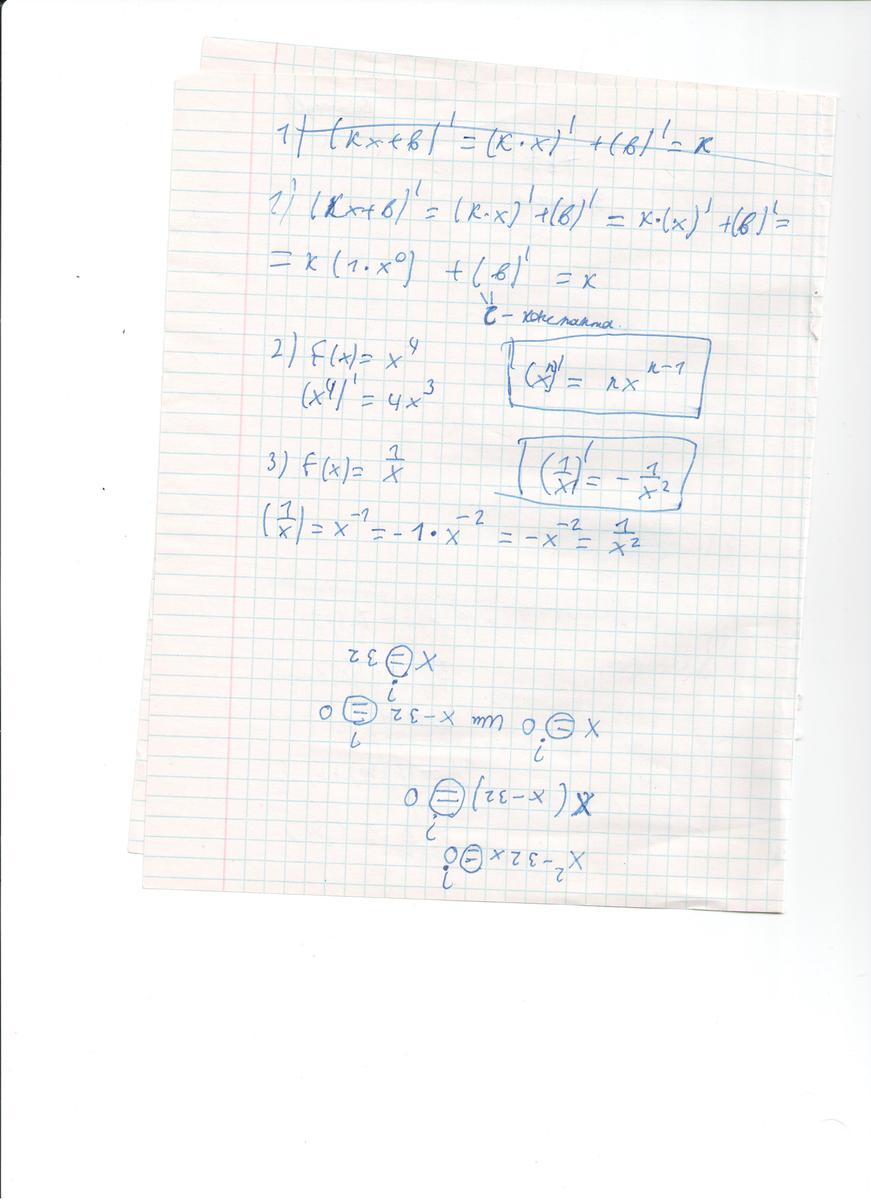 1) (кx+в)' = (к·x)' + (в)' = к
1) (кx+в)' = (к·x)' + (в)' = к·(x)' + (в)' =
= к (1·x⁰) + (в)' = к
c – константа.
2) f(x) = x⁴
(x⁴)' = 4x³
(xⁿ)' = nxⁿ⁻¹
3) f(x) = 1/x
(1/x)' = - 1/x²
(1/x) = x⁻¹ = -1·x⁻² = -x⁻² = 1/x²
x² - 32x = 0
?
x(x-32) = 0
?
x = 0 или x-32 = 0
? ?
x = 32